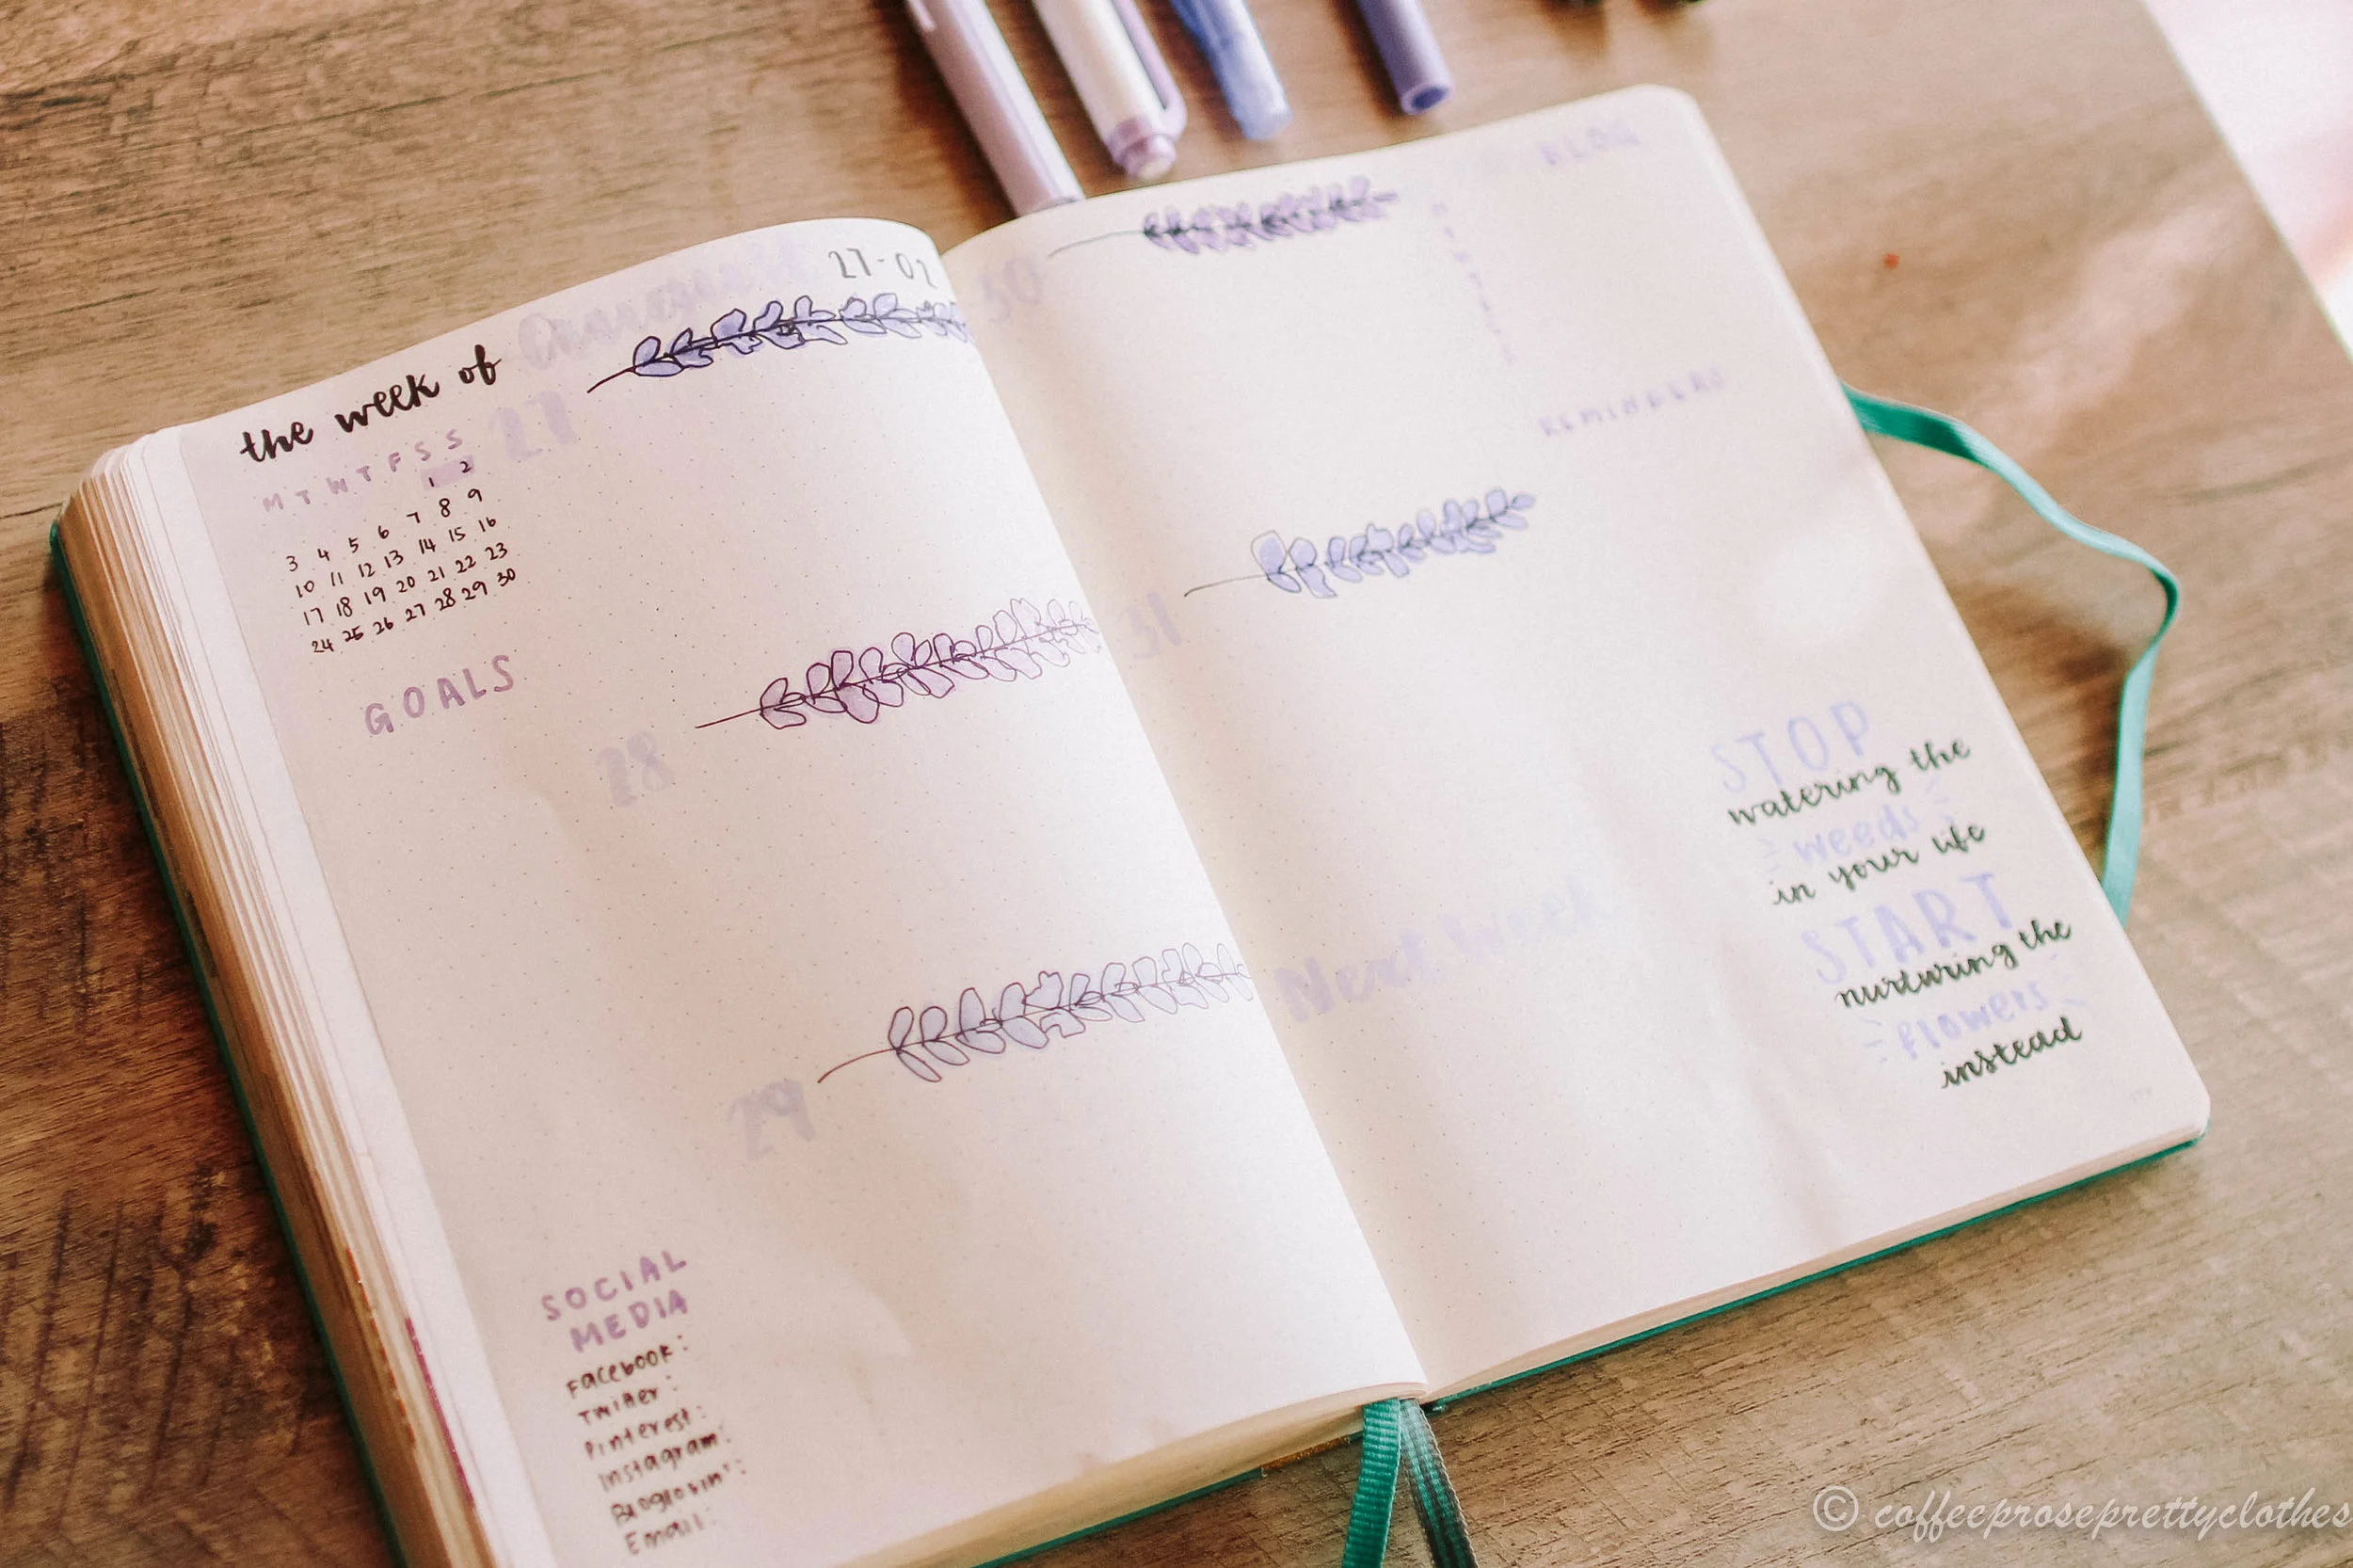 the week of
27-02
27
M T W T F S S
1 2
3 4 5 6 7 8 9
10 11 12 13 14 15 16
17 18 19 20 21 22 23
24 25 26 27 28 29 30
GOALS
28
29
SOCIAL
MEDIA
Facebook:
Twitter:
Pinterest:
Instagram:
Bloglovin':
Email:
30
BLOG
REMINDERS
31
Next Week
STOP
watering the
weeds
in your life
START
nurturing the
flowers
instead
© coffeeproseprettyclothes